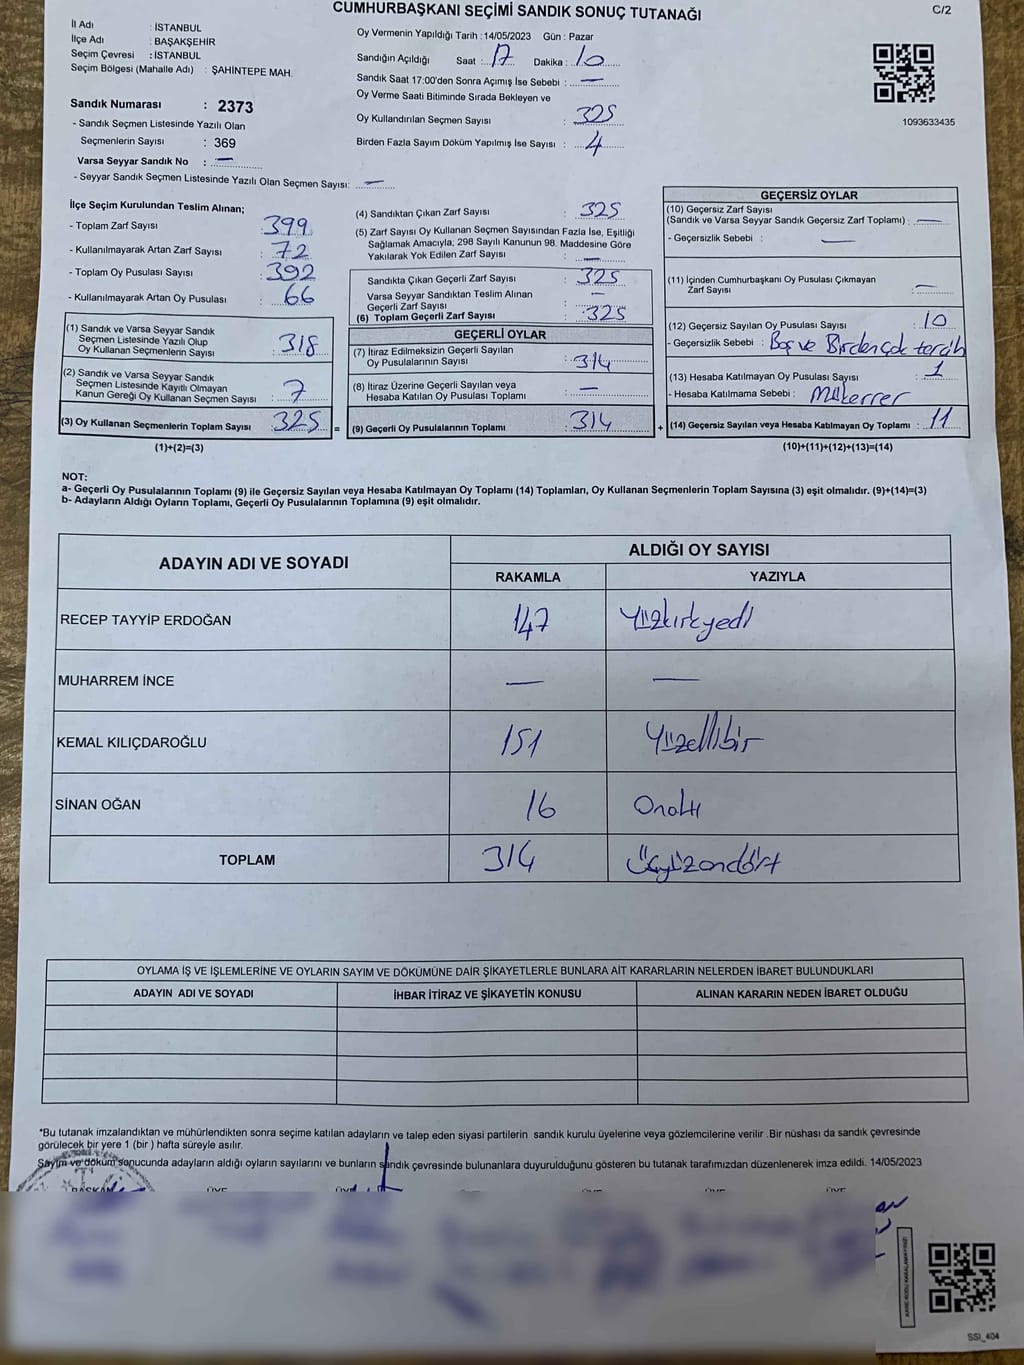 CUMHURBAŞKANI SEÇİMİ SANDIK SONUÇ TUTANAĞI
C/2
İl Adı : İSTANBUL
İlçe Adı : BAŞAKŞEHİR
Seçim Çevresi : İSTANBUL
Seçim Bölgesi (Mahalle Adı) : ŞAHİNTEPE MAH.
Sandık Numarası : 2373
- Sandık Seçmen Listesinde Yazılı Olan
Seçmenlerin Sayısı : 369
Varsa Seyyar Sandık No : —
- Seyyar Sandık Seçmen Listesinde Yazılı Olan Seçmen Sayısı: —
Oy Vermenin Yapıldığı Tarih : 14/05/2023 Gün : Pazar
Sandığın Açıldığı Saat : 17 Dakika : 10
Sandık Saat 17:00'den Sonra Açımış İse Sebebi : —
Oy Verme Saati Bitiminde Sırada Bekleyen ve
Oy Kullandırılan Seçmen Sayısı : 325
Birden Fazla Sayım Döküm Yapılmış İse Sayısı : 4
1093633435
İlçe Seçim Kurulundan Teslim Alınan;
- Toplam Zarf Sayısı : 399
- Kullanılmayarak Artan Zarf Sayısı : 72
- Toplam Oy Pusulası Sayısı : 392
- Kullanılmayarak Artan Oy Pusulası : 66
(1) Sandık ve Varsa Seyyar Sandık
Seçmen Listesinde Yazılı Olup
Oy Kullanan Seçmenlerin Sayısı : 318
(2) Sandık ve Varsa Seyyar Sandık
Seçmen Listesinde Kayıtlı Olmayan
Kanun Gereği Oy Kullanan Seçmen Sayısı : 7
(3) Oy Kullanan Seçmenlerin Toplam Sayısı : 325
(1)+(2)=(3)
(4) Sandıktan Çıkan Zarf Sayısı : 325
(5) Zarf Sayısı Oy Kullanan Seçmen Sayısından Fazla İse, Eşitliği
Sağlamak Amacıyla, 298 Sayılı Kanunun 98. Maddesine Göre
Yakılarak Yok Edilen Zarf Sayısı : —
Sandıkta Çıkan Geçerli Zarf Sayısı : 325
Varsa Seyyar Sandıktan Teslim Alınan
Geçerli Zarf Sayısı : —
(6) Toplam Geçerli Zarf Sayısı : 325
GEÇERLİ OYLAR
(7) İtiraz Edilmeksizin Geçerli Sayılan
Oy Pusulalarının Sayısı : 314
(8) İtiraz Üzerine Geçerli Sayılan veya
Hesaba Katılan Oy Pusulası Toplamı : —
= (9) Geçerli Oy Pusulalarının Toplamı : 314
GEÇERSİZ OYLAR
(10) Geçersiz Zarf Sayısı
(Sandık ve Varsa Seyyar Sandık Geçersiz Zarf Toplamı) : —
- Geçersizlik Sebebi : —
(11) İçinden Cumhurbaşkanı Oy Pusulası Çıkmayan
Zarf Sayısı : —
(12) Geçersiz Sayılan Oy Pusulası Sayısı : 10
- Geçersizlik Sebebi : Boş ve Birden çok tercih
(13) Hesaba Katılmayan Oy Pusulası Sayısı : 1
- Hesaba Katılmama Sebebi : Mükerrer
+ (14) Geçersiz Sayılan veya Hesaba Katılmayan Oy Toplamı : 11
(10)+(11)+(12)+(13)=(14)
NOT:
a- Geçerli Oy Pusulalarının Toplamı (9) ile Geçersiz Sayılan veya Hesaba Katılmayan Oy Toplamı (14) Toplamları, Oy Kullanan Seçmenlerin Toplam Sayısına (3) eşit olmalıdır. (9)+(14)=(3)
b- Adayların Aldığı Oyların Toplamı, Geçerli Oy Pusulalarının Toplamına (9) eşit olmalıdır.
ADAYIN ADI VE SOYADI
ALDIĞI OY SAYISI
RAKAMLA YAZIYLA
RECEP TAYYİP ERDOĞAN 147 Yüzkırkyedi
MUHARREM İNCE — —
KEMAL KILIÇDAROĞLU 151 Yüzellibir
SİNAN OĞAN 16 Onaltı
TOPLAM 314 Üçyüzondört
OYLAMA İŞ VE İŞLEMLERİNE VE OYLARIN SAYIM VE DÖKÜMÜNE DAİR ŞİKAYETLERLE BUNLARA AİT KARARLARIN NELERDEN İBARET BULUNDUKLARI
ADAYIN ADI VE SOYADI İHBAR İTİRAZ VE ŞİKAYETİN KONUSU ALINAN KARARIN NEDEN İBARET OLDUĞU
*Bu tutanak imzalandıktan ve mühürlendikten sonra seçime katılan adayların ve talep eden siyasi partilerin sandık kurulu üyelerine veya gözlemcilerine verilir .Bir nüshası da sandık çevresinde
görülecek bir yere 1 (bir ) hafta süreyle asılır.
Sayım ve döküm sonucunda adayların aldığı oyların sayılarını ve bunların sandık çevresinde bulunanlara duyurulduğunu gösteren bu tutanak tarafımızdan düzenlenerek imza edildi. 14/05/2023
BAŞKAN ÜYE ÜYE ÜYE ÜYE ÜYE
SSI_404